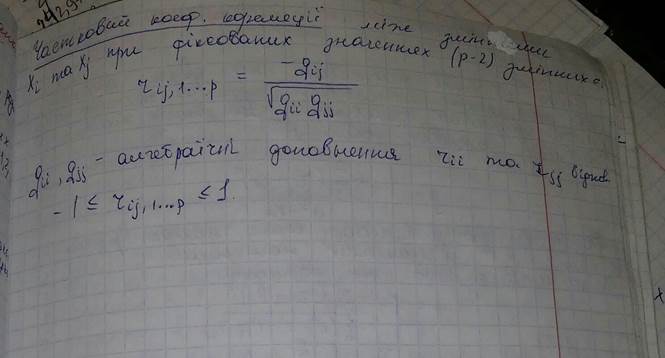 Частковий коеф. кореляції між змінними
Xi та Xj при фіксованих значеннях (p-2) змінних є:
rij,1...p = -qij / √qii qjj
qii, qjj - алгебраїчні доповнення rii та rjj відпов
-1 ≤ rij,1...p ≤ 1.